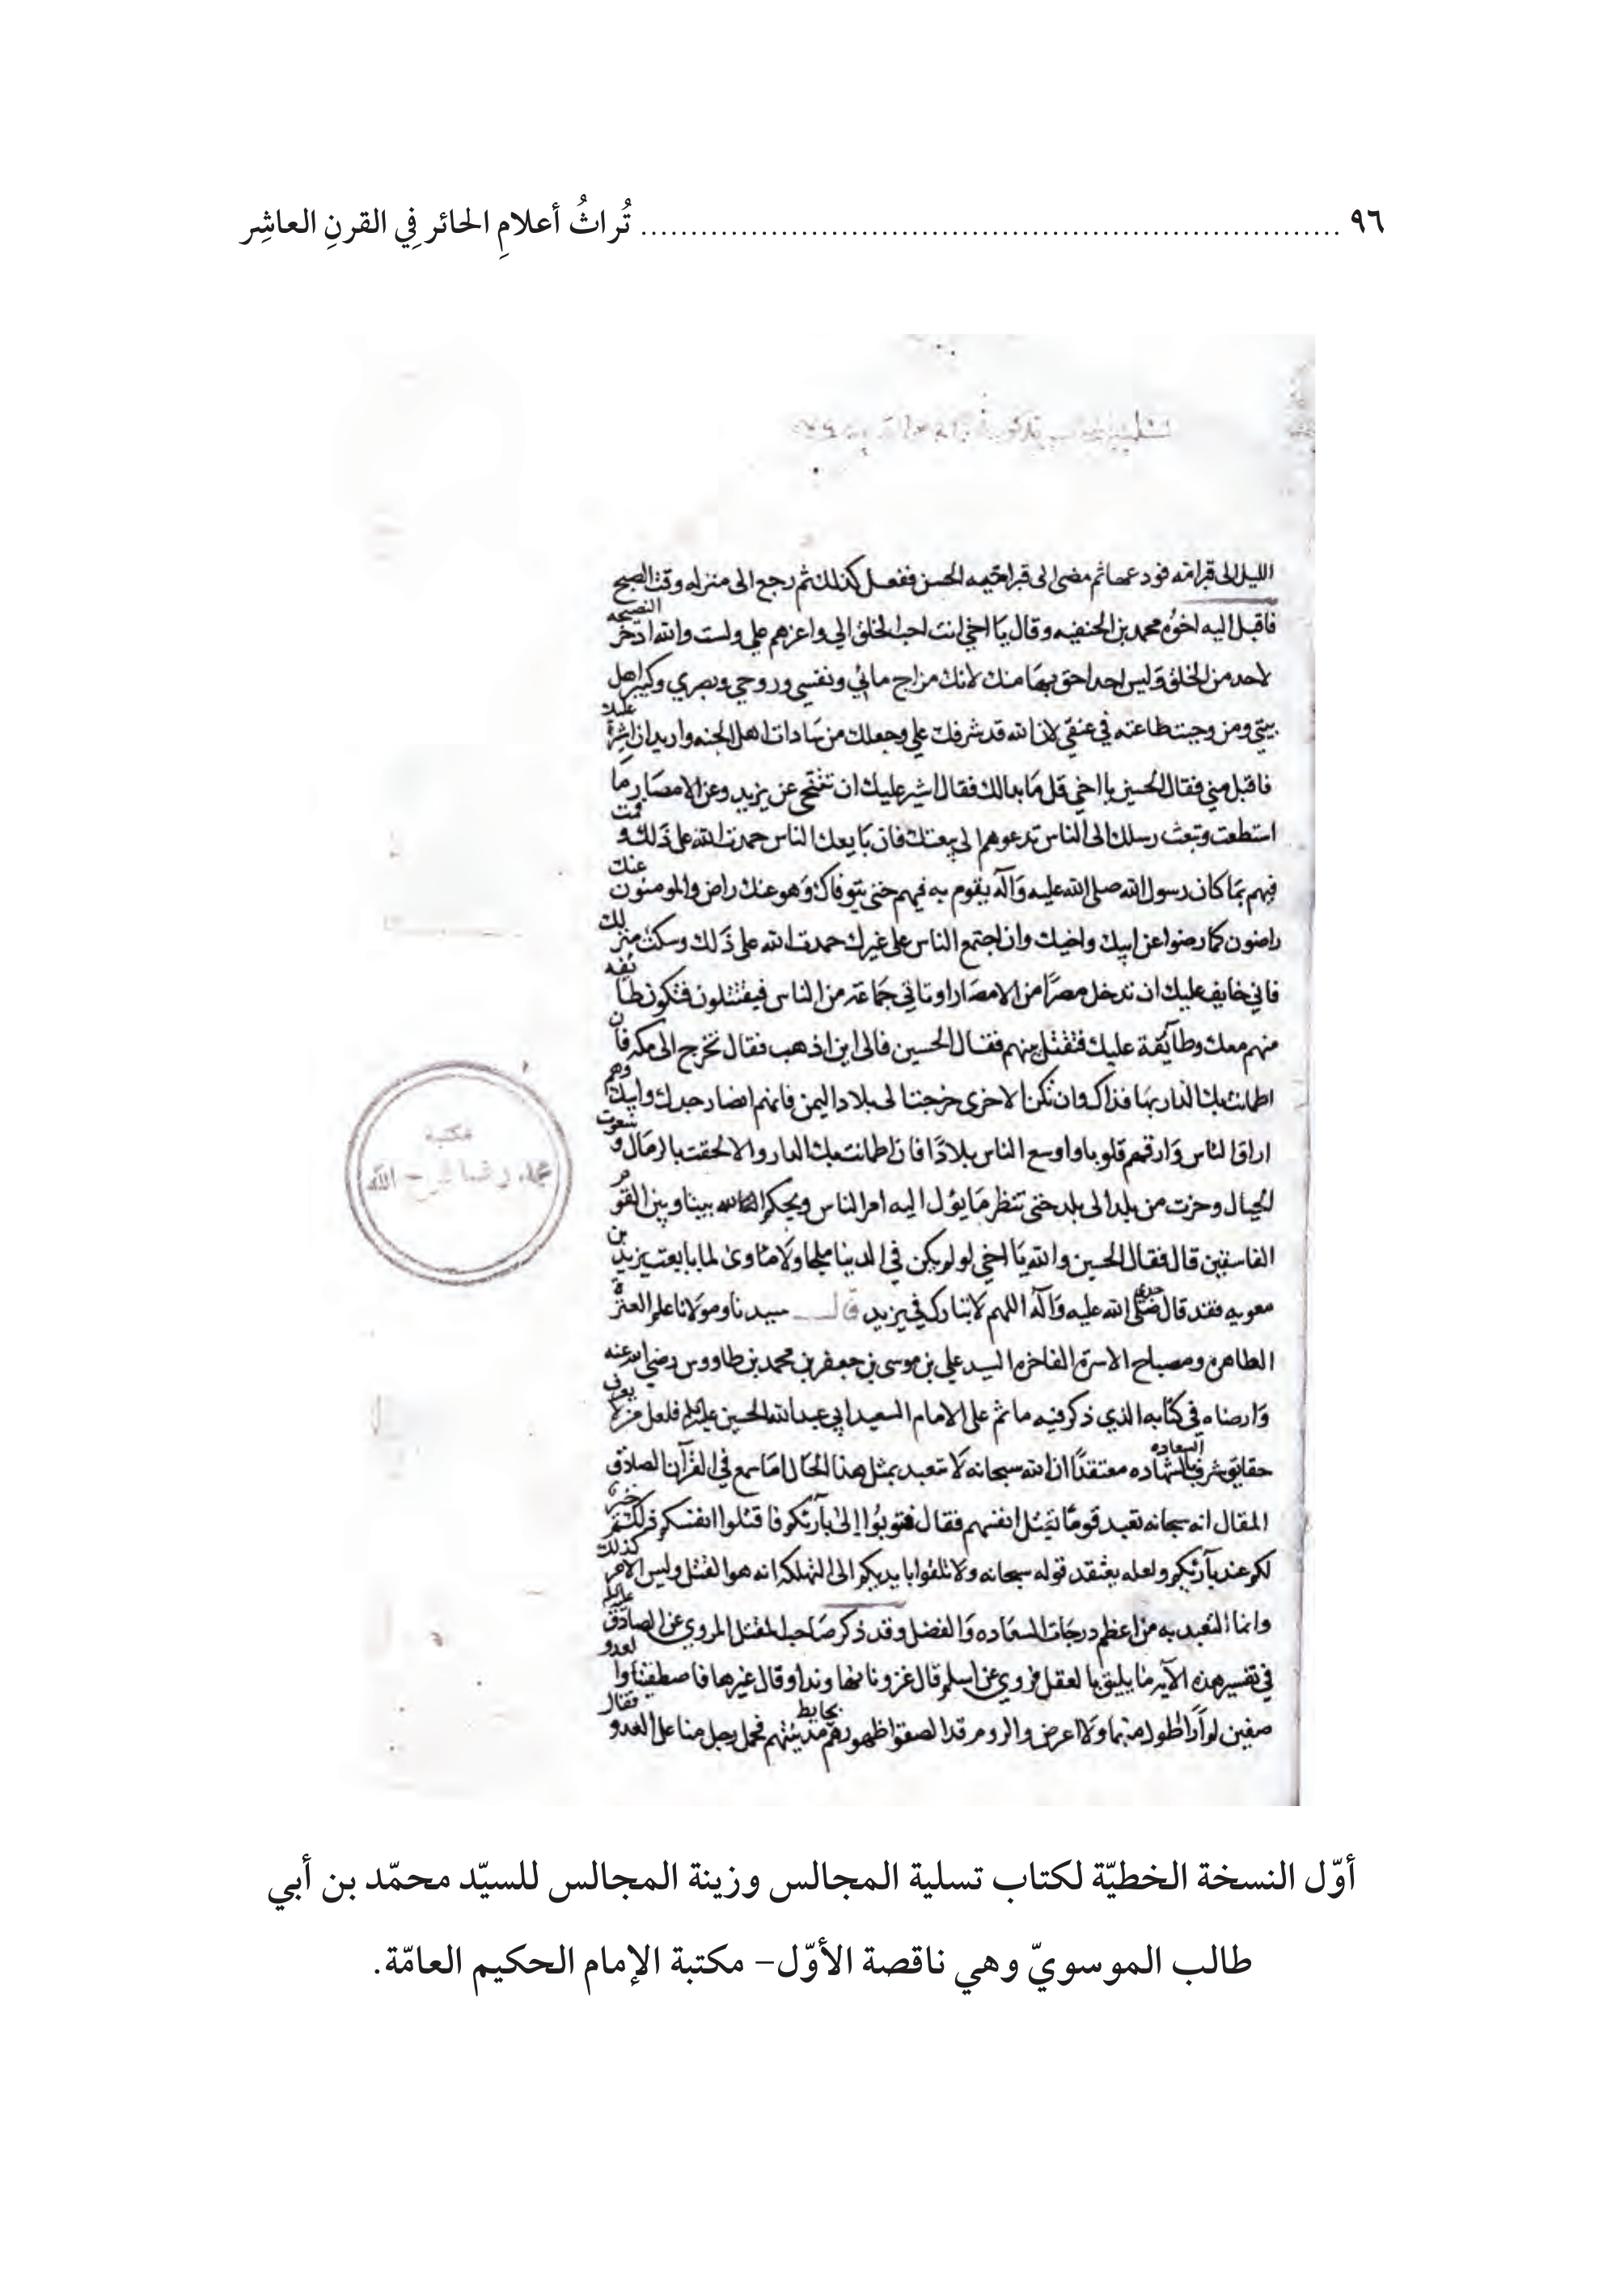 ٩٦ ........ تُراثُ أعلامِ الحائر فِي القرنِ العاشِر
الليل الى قبر امه فودعها ثم مضى الى قبر اخيه الحسن ففعل كذلك ثم رجع الى منزله وقت الصبح
فاقبل اليه اخوه محمد بن الحنفيه وقال يا اخي انت احب الخلق الي واعزهم علي ولست والله ادخر النصيحه
لاحد من الخلق وليس احد احق بها منك لانك مزاج مائي ونفسي وروحي وبصري وكبير اهل
بيتي ومن وجبت طاعته في عنقي لان الله قد شرفك علي وجعلك من سادات اهل الجنه واريد ان اشير عليك
فاقبل مني فقال الحسين يا اخي قل ما بدالك فقال اشير عليك ان تتنحى عن يزيد وعن الامصار ما
استطعت وتبعث رسلك الى الناس تدعوهم الى بيعتك فان بايعك الناس حمدت الله على ذلك وقمت
فيهم بما كان رسول الله صلى الله عليه وآله يقوم به فيهم حتى يتوفاك وهو عنك راض والمومنون عنك
راضون كما رضوا عن ابيك واخيك وان اجتمع الناس على غيرك حمدت الله على ذلك وسكنت منزلك
فاني خايف عليك ان تدخل مصرًا من الامصار او تاتي جماعة من الناس فيقتتلون فتكون طايفه
منهم معك وطآيفة عليك فتقتل بينهم فقال الحسين فالى اين اذهب فقال تخرج الى مكه فان
اطمانت بك الدار بها فذاك وان تكن الاخرى خرجت الى بلاد اليمن فانهم انصار جدك وابيك وهم
اراف الناس وارقهم قلوبا واوسع الناس بلادًا فان اطمانت بك الدار والا لحقت بالرمال وشعوب
الجبال وجزت من بلد الى بلد حتى تنظر ما يؤل اليه امر الناس ويحكم الله بيننا وبين القوم
الفاسقين قال فقال الحسين والله يا اخي لو لم يكن في الدنيا ملجا ولا ماوى لما بايعت يزيد بن
معويه فقد قال جدي صلى الله عليه وآله اللهم لا تبارك في يزيد قال سيدنا ومولانا علم العترة
الطاهره ومصباح الاسرة الفاخره السيد علي بن موسى بن جعفر بن محمد بن طاووس رضي الله عنه
وارضاه في كتابه الذي ذكر فيه ما تم على الامام السعيد ابي عبدالله الحسين عليه السلم فلعل من لا يعرف
حقايق شرف السعاده بالشهاده معتقدًا ان الله سبحانه لا تتعبد بمثل هذا الحال اما سمع في القرآن الصادق
المقال انه سبحانه تعبد قومًا بقتل انفسهم فقال فتوبوا إلى بآرئكم فاقتلوا انفسكم ذلكم خير
لكم عند بآرئكم ولعله يعتقد قوله سبحانه ولا تلقوا بايديكم الى التهلكه انه هو القتل وليس الامر كذلك
وانما التعبد به من اعظم درجات السعاده والفضل وقد ذكر صاحب المقتل المروي عن الصادق عليه السلم
في تفسير هذه الآيه ما يليق بالعقل فروي عن اسلم قال غزونا نهاوند او قال غيرها فاصطفينا والعدو
صفين لم ار اطول منهما ولا اعرض والروم قد الصقوا ظهورهم بحايط مدينتهم فحمل رجل منا على العدو فقال
مكتبة
محمد رضا فرج الله
أوّل النسخة الخطيّة لكتاب تسلية المجالس وزينة المجالس للسيّد محمّد بن أبي
طالب الموسويّ وهي ناقصة الأوّل– مكتبة الإمام الحكيم العامّة.